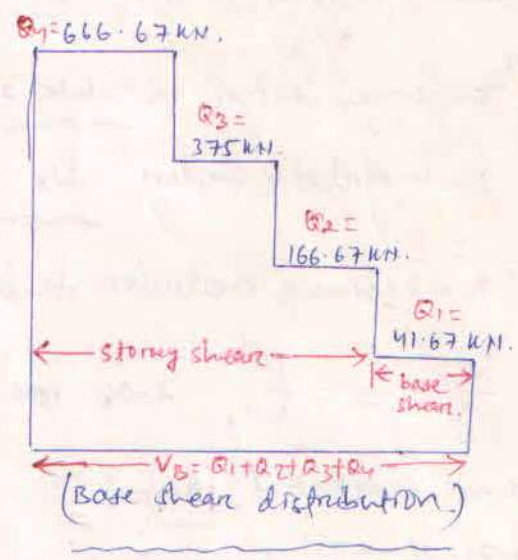 Q4=666.67KN.
Q3=
375KN.
Q2=
166.67KN.
Q1=
41.67KN.
storey shear
base
shear.
VB=Q1+Q2+Q3+Q4
(Base shear distribution.)